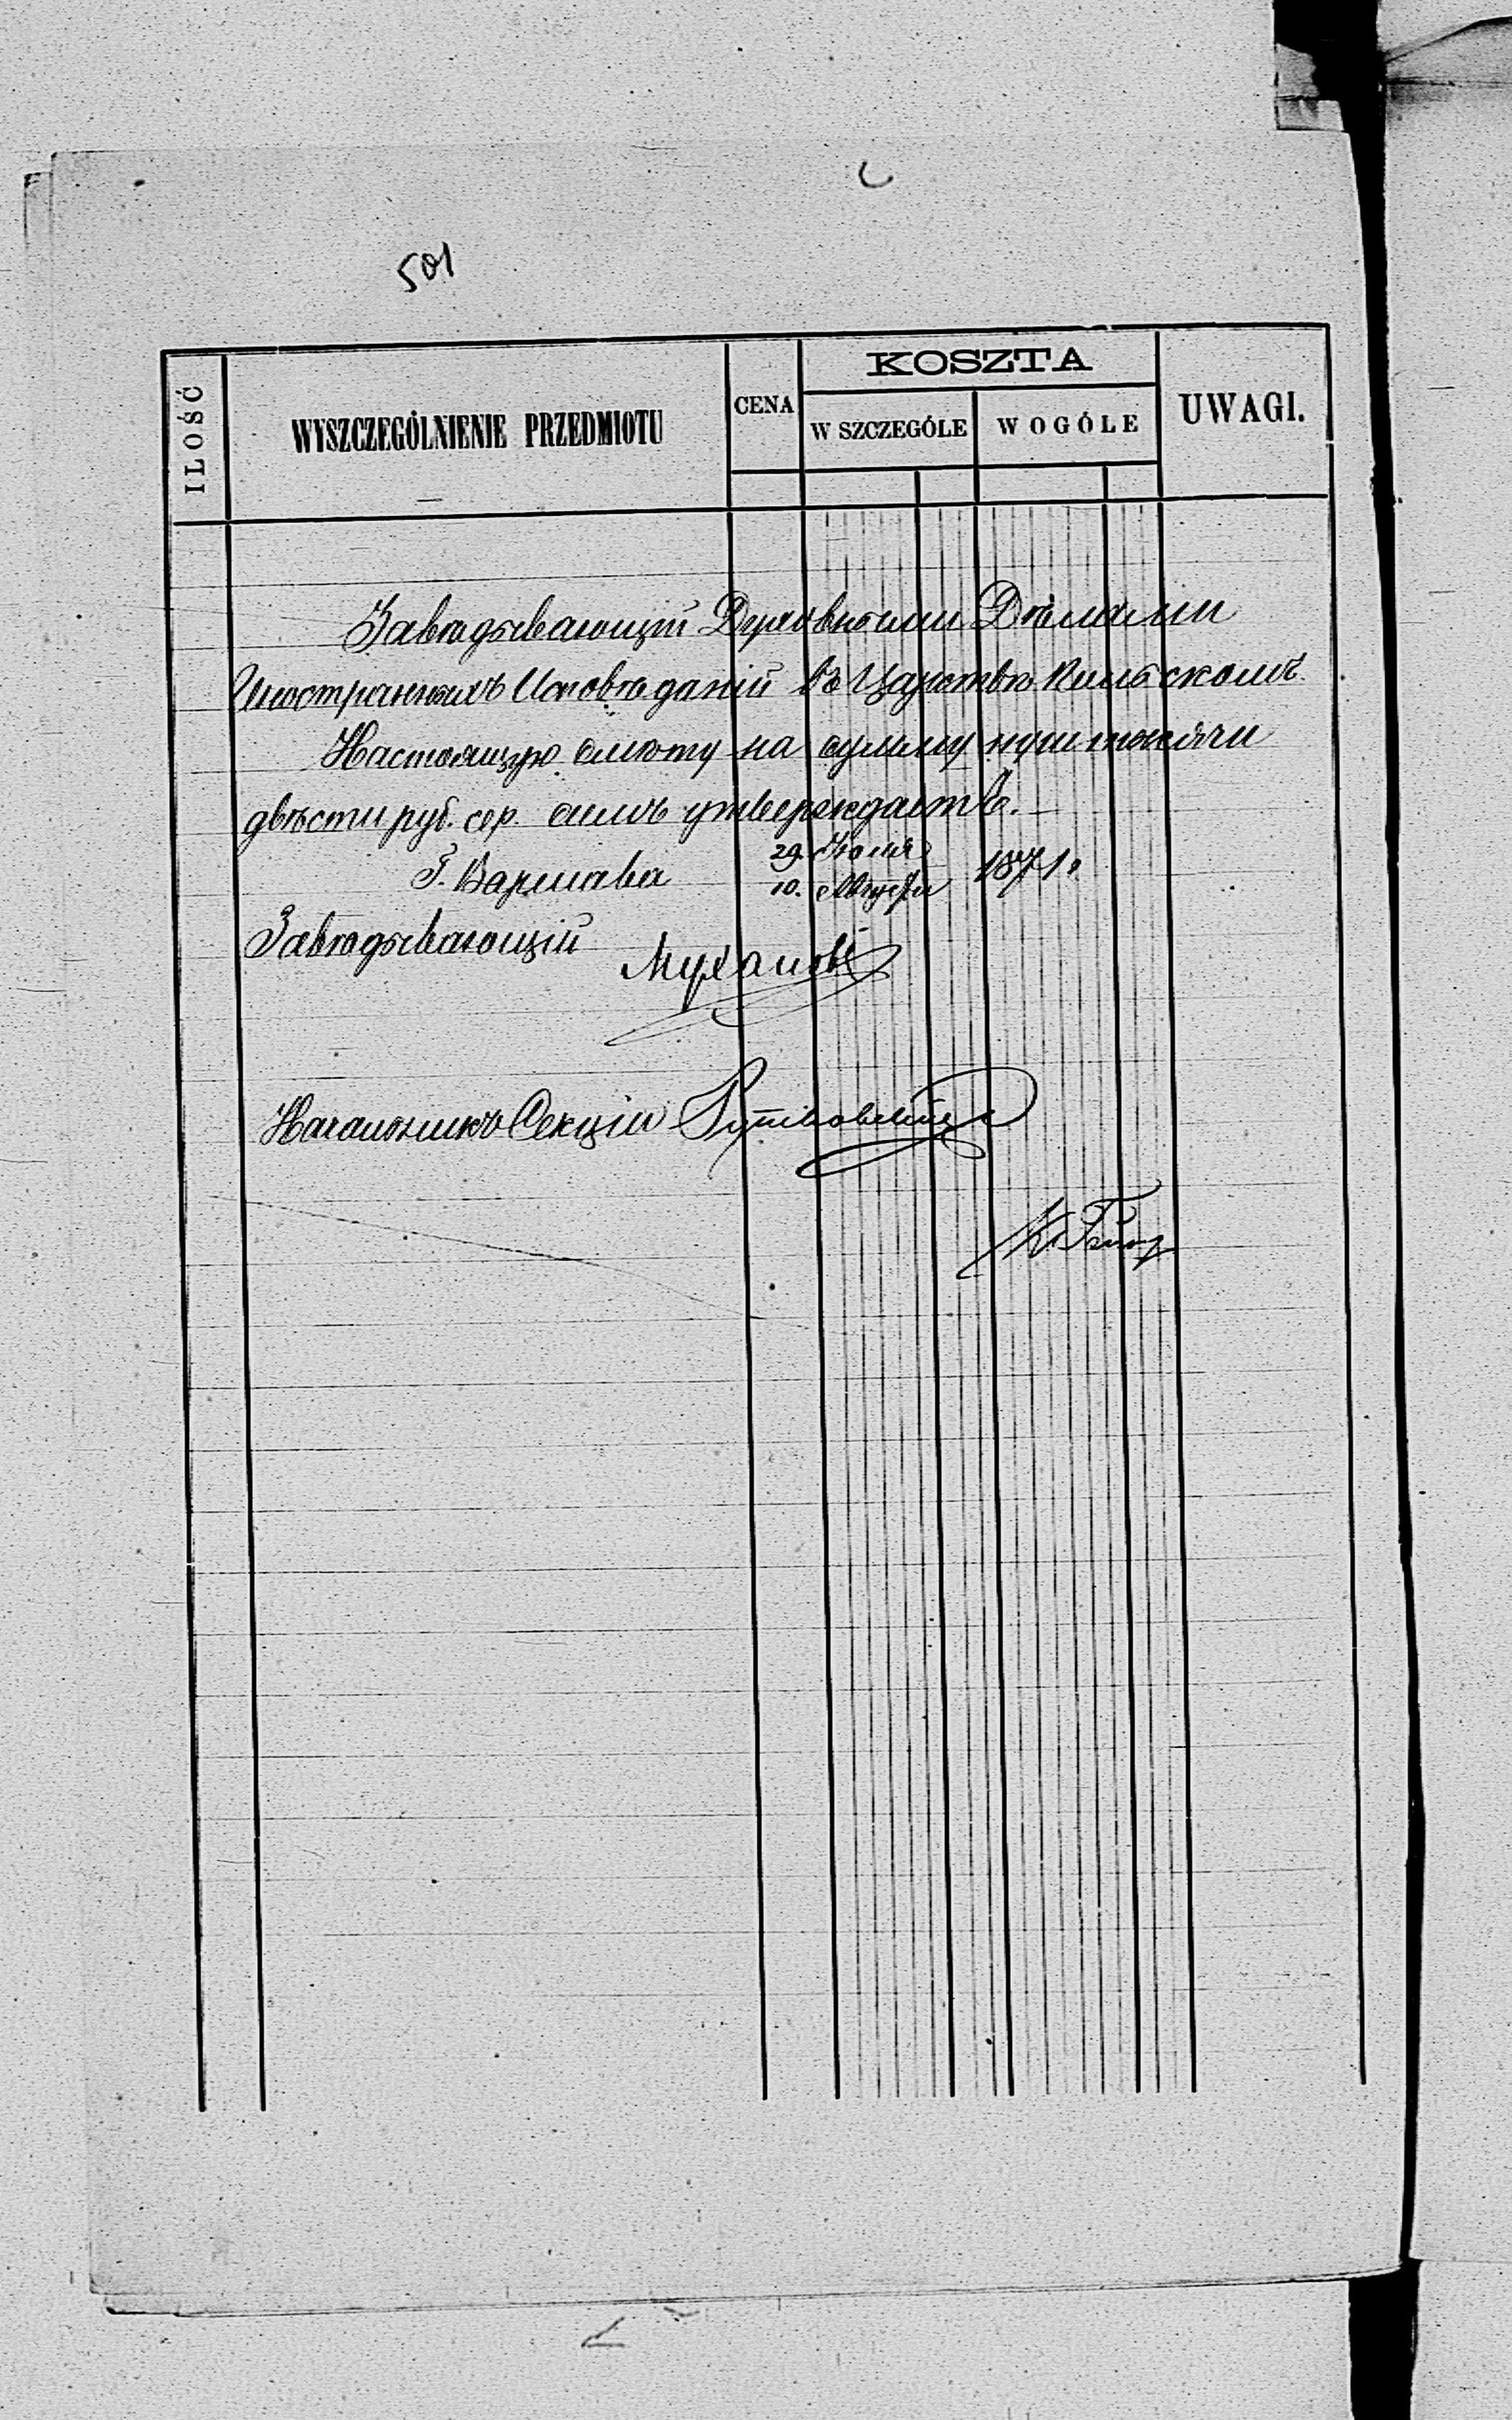 501
ILOŚĆ
WYSZCZEGÓLNIENIE PRZEDMIOTU
CENA
KOSZTA
W SZCZEGÓLE
W OGÓLE
UWAGI.
Завѣдывающій Духовными Дѣлами
Иностранныхъ Исповѣданій въ Царствѣ Польскомъ.
Настоящую смѣту на сумму тысячи
двѣсти руб. сер. симъ утверждаетъ.
Г. Варшава 29. Іюля 1871.
10. Августа
Завѣдывающій Мухановъ
Начальникъ Секціи